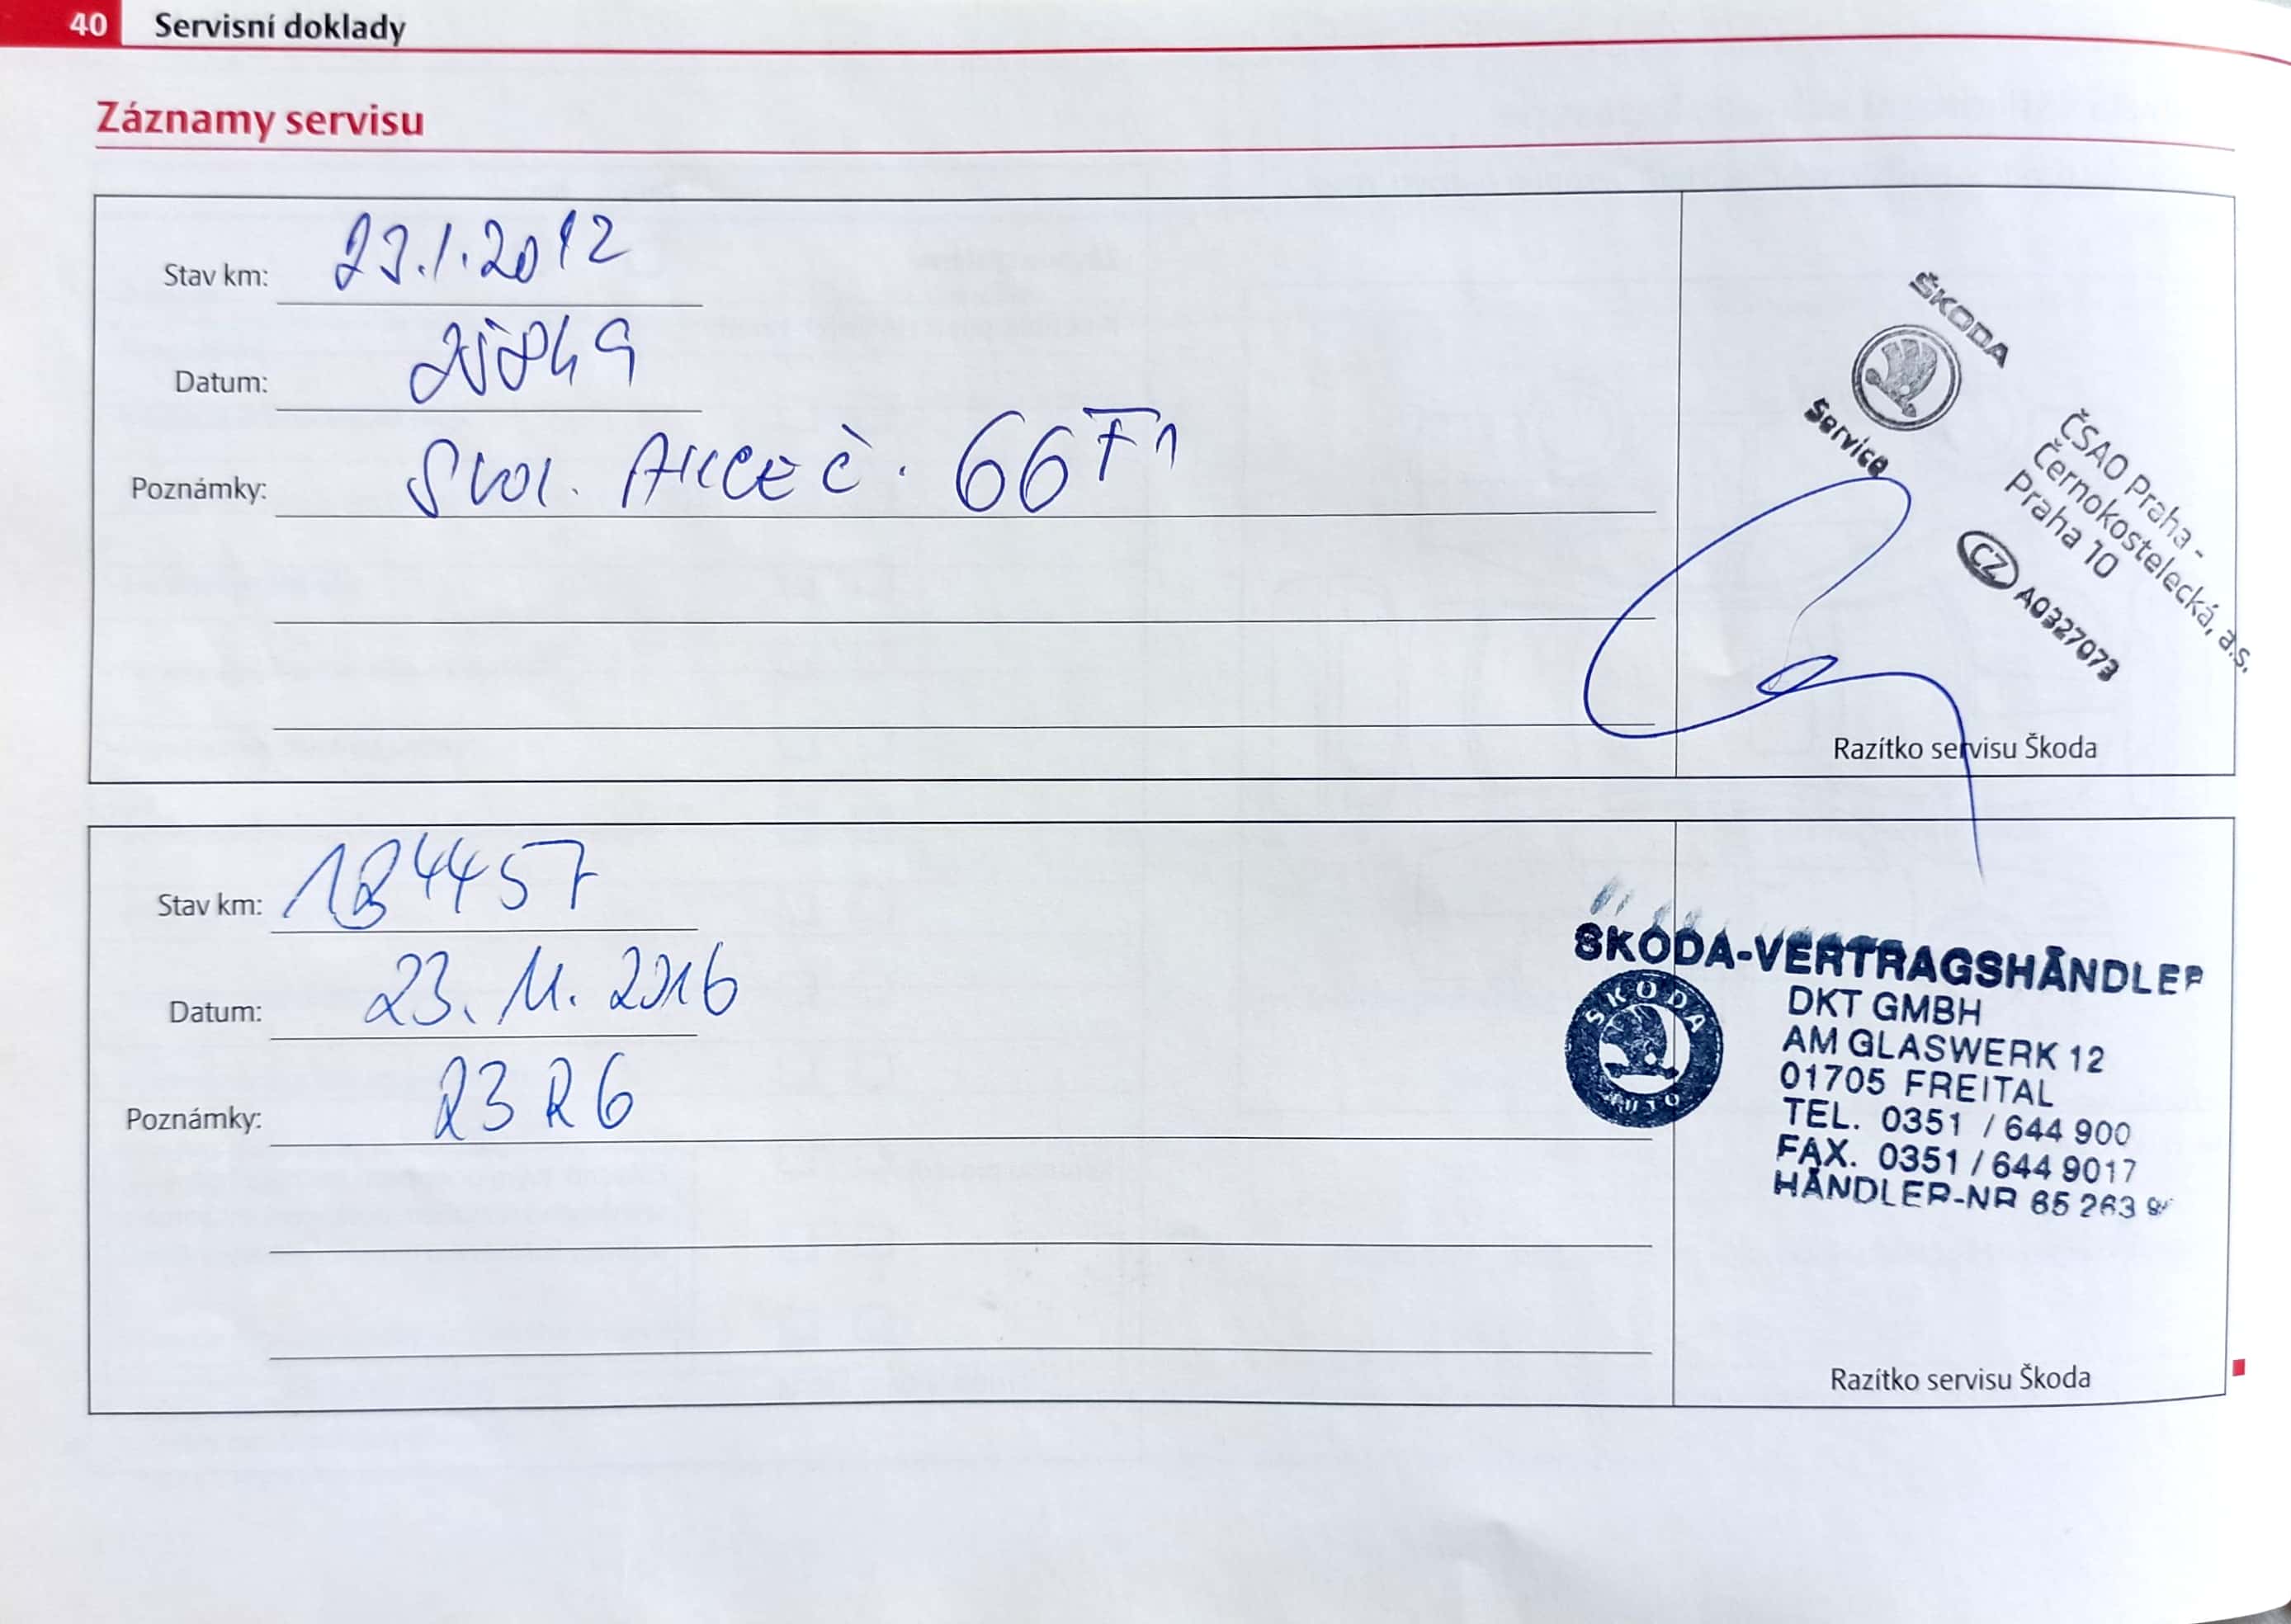 40 Servisní doklady
Záznamy servisu
Stav km: 23.1.2012
Datum:
Poznámky: Svol. AKCE č. 66F1
ŠKODA
Service
ČSAO Praha -
Černokostelecká, a.s.
Praha 10
CZ A0327073
Razítko servisu Škoda
Stav km: 184457
Datum: 23. 11. 2016
Poznámky: 23R6
SKODA-VERTRAGSHÄNDLER
SKODA
AUTO
DKT GMBH
AM GLASWERK 12
01705 FREITAL
TEL. 0351 / 644 900
FAX. 0351 / 644 9017
HÄNDLER-NR 65 263
Razítko servisu Škoda